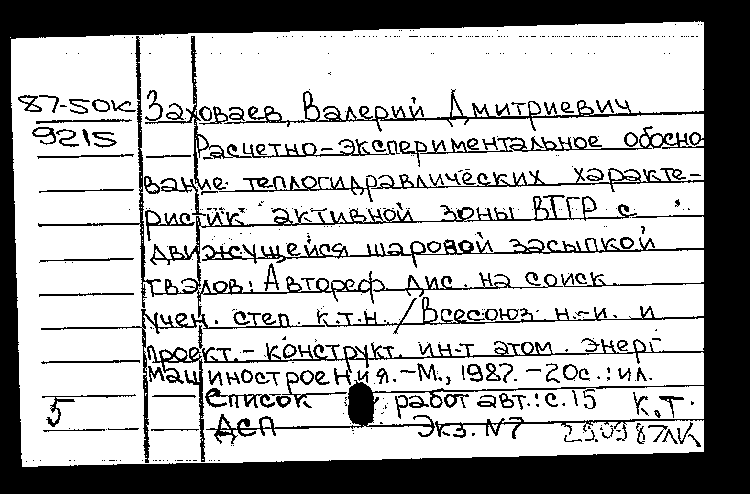 87-50к Заховаев, Валерий Дмитриевич
9215 Расчетно-экспериментальное обосно
вание теплогидравлических характе-
ристик активной зоны ВТГР с
движущейся шаровой засыпкой
твэлов: Автореф. дис. на соиск.
учен. степ. к.т.н. / Всесоюз. н.-и. и
проект.-конструкт. ин-т атом. энерг.
машиностроения.-М., 1987. -20с.: ил.
5 Список работ авт.: с.15 к.т.
ДСП Экз. N7 29.09.87ЛК